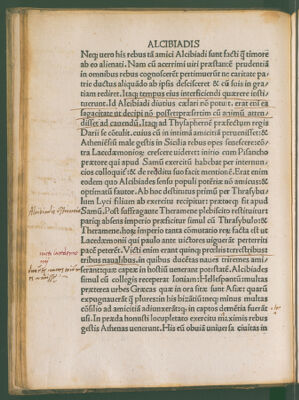 ALCIBIADIS
Neq; uero his rebus tā amici Alcibiadi sunt facti q̄ timore
ab eo alienati. Nam cū acerrimi uiri præstantē prudentiā
in omnibus rebus cognoscerēt pertimuerūt ne caritate pa-
triæ ductus aliquādo ab ipsis descisceret & cū suis in gra-
tiam rediret. Itaq; tempus eius interficiendi quærere insti-
tuerunt. Id Alcibiadi diutius cælari nō potuit. erat enī ea
sagacitate ut decipi nō posset præsertim cū animū atten-
disset ad cauendū. Itaq; ad Thysaphernē præfectum regis
Darii se cōtulit. cuius cū in intimā amicitiā peruenisset: &
Atheniēsiū male gestis in Sicilia rebus opes senescere: cō-
tra Lacedæmonios crescere uideret initio cum Pisandro
prætore qui apud Samū exercitū habebat per internun-
cios colloquit̄: & de reditu suo facit mentionē. Erat enim
eodem quo Alcibiades sensu populi potētiæ nō amicus: &
optimatū fautor. Ab hoc destitutus primum per Thrasybu-
lum Lyci filiam ab exercitu recipitur: prætorq; fit apud
Samū. Post suffragante Theramene plebiscito restituitur:
pariq; absens imperio præficitur simul cū Thrasybulo: &
Theramene. horū imperio tanta cōmutatio reȩ facta est ut
Lacedæmonii qui paulo ante uictores uiguerāt perterriti
pacē peterēt. Victi enim erant quinq; prœliis terrestribus
tribus naualibus. in quibus ducētas naues triremes ami-
serant: quæ captæ in hostiū uenerant potestatē. Alcibiades
simul cū collegis receperat Ioniam: Hellespontū: multas
præterea urbes Græcas quæ in ora sitæ sunt Asiæ: quarū
expugnauerāt q̄ plures: in his bizātiū: neq; minus multas
cōsilio ad amicitiā adiunxerāt: q; in captos clemētia fuerāt
usi. In præda honusti locupletato exercitu maximis rebus
gestis Athenas uenerunt. His cū obuiā uniuersa ciuitas in